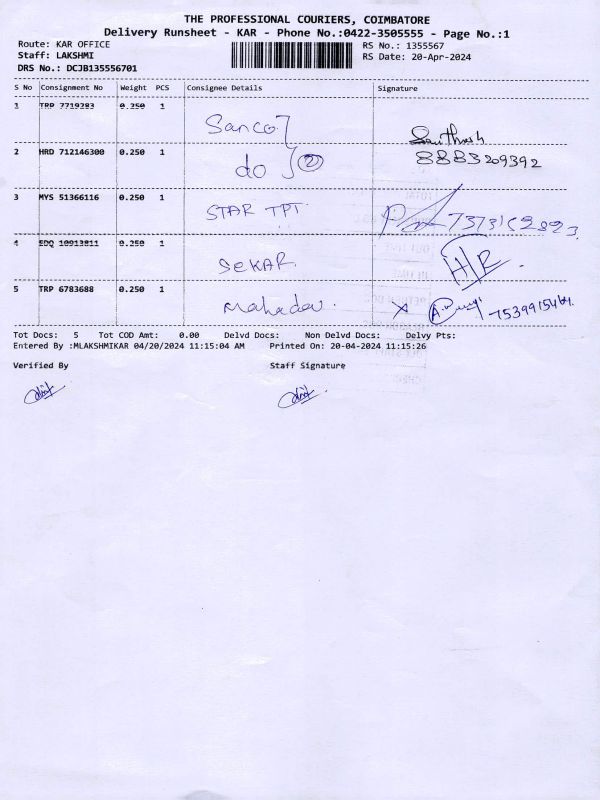 THE PROFESSIONAL COURIERS, COIMBATORE
Delivery Runsheet - KAR - Phone No.:0422-3505555 - Page No.:1
Route: KAR OFFICE RS No.: 1355567
Staff: LAKSHMI RS Date: 20-Apr-2024
DRS No.: DCJB135556701
S No Consignment No Weight PCS Consignee Details Signature
1 TRP 7719283 0.250 1 Sanco
Santhosh
2 HRD 712146300 0.250 1 do 2 8883209392
3 MYS 51366116 0.250 1 STAR TPT
4 EDQ 10913811 0.250 1 SEKAR H/R
5 TRP 6783688 0.250 1 Mahadev X
Tot Docs: 5 Tot COD Amt: 0.00 Delvd Docs: Non Delvd Docs: Delvy Pts:
Entered By :MLAKSHMIKAR 04/20/2024 11:15:04 AM Printed On: 20-04-2024 11:15:26
Verified By Staff Signature